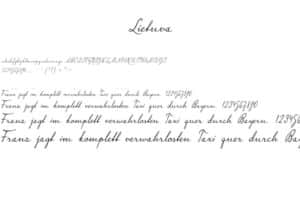 Lietuva
abcdefghijklmnopqrstuvwxyz ABCDEFGHIJKLMNOPQRSTUVWXYZ
1234567890
Franz jagt im komplett verwahrlosten Taxi quer durch Bayern. 1234567890
Franz jagt im komplett verwahrlosten Taxi quer durch Bayern. 1234567890
Franz jagt im komplett verwahrlosten Taxi quer durch Bayern. 123456
Franz jagt im komplett verwahrlosten Taxi quer durch